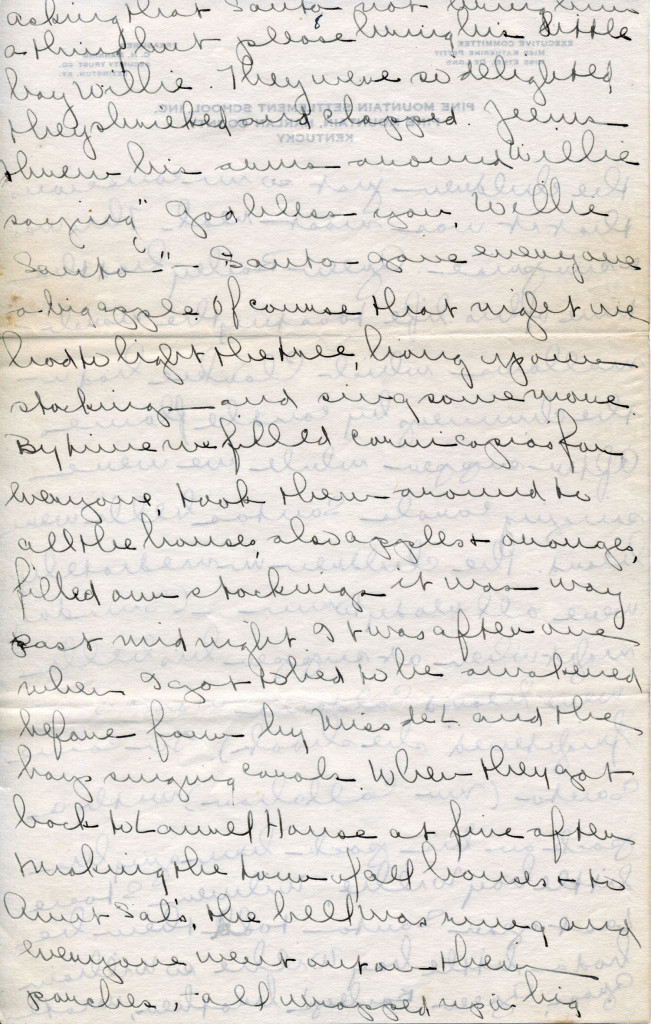 asking that Santa not bring him
a thing but please bring his little
boy Willie. They were so delighted
they shrieked and clapped. Jeems
threw his arms around Willie
saying "God bless you, Willie
Santa"!" - Santa gave everyone
a big apple. Of course that night we
had to light the tree, hang up our
stockings and sing some more.
By time we filled cornicopias for
everyone, took them around to
all the houses, also apples & oranges,
filled our stockings it was way
past midnight. It was after one
when I got to bed to be awakened
before four by Miss deL and the
boys singing carols. When they got
back to Laurel House at five after
making the tour of all houses & to
Aunt Sal's, the bell was rung and
everyone went out on their
porches, all wrapped up in big